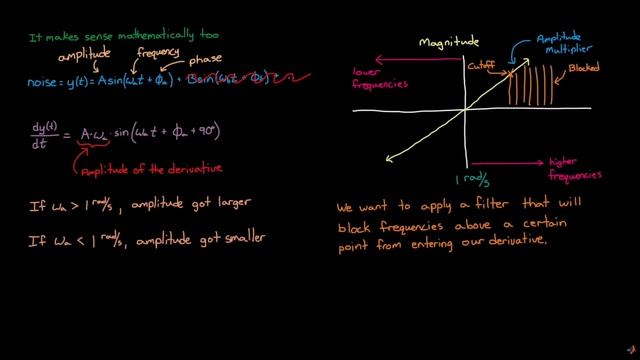 It makes sense mathematically too
amplitude frequency phase
noise = y(t) = A sin(ωₐt + φₐ) +
dy(t)/dt = A·ωₐ · sin(ωₐt + φₐ + 90°)
Amplitude of the derivative
If ωₐ > 1 rad/s, amplitude got larger
If ωₐ < 1 rad/s, amplitude got smaller
Magnitude
Amplitude
Multiplier
Cutoff
Blocked
lower
frequencies
1 rad/s
higher
frequencies
We want to apply a filter that will
block frequencies above a certain
point from entering our derivative.